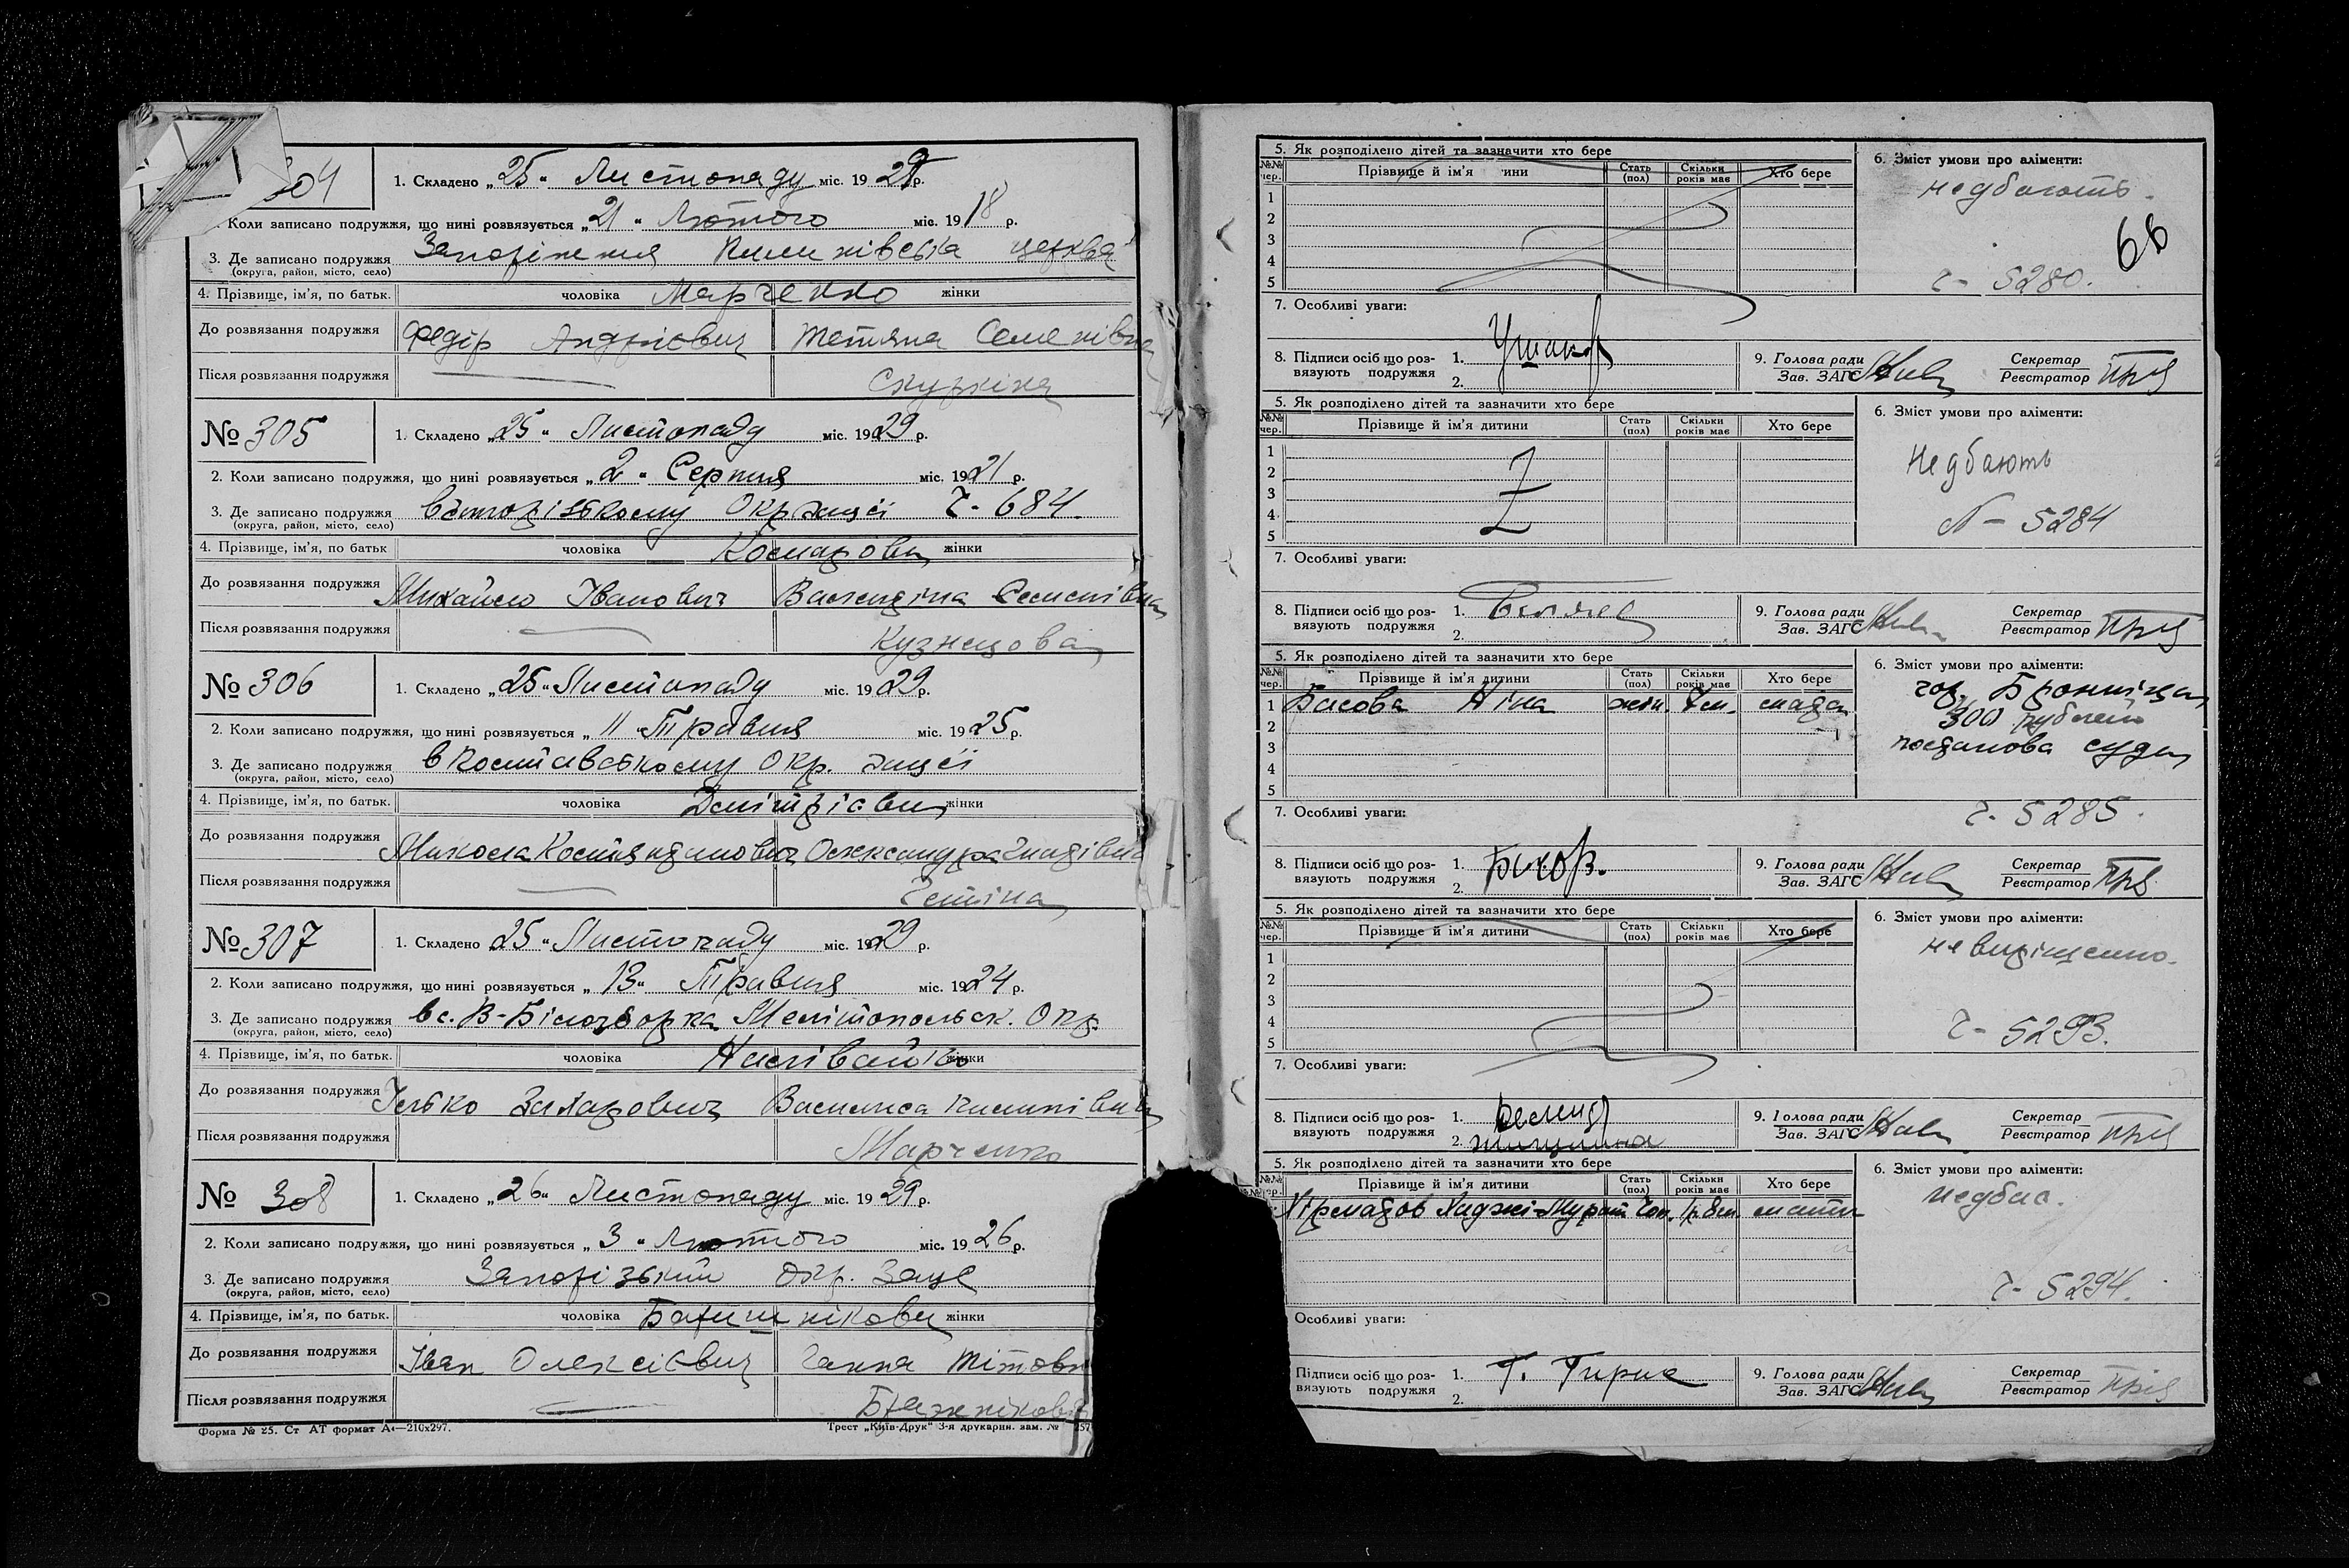 304
1. Складено „25“ Листопаду міс. 1929 р.
Коли записано подружжя, що нині розвязується „21“ Лютого міс. 1918 р.
3. Де записано подружжя церква
(округа, район, місто, село)
4. Прізвище, ім'я, по батьк. чоловіка Марченко жінки
До розвязання подружжя Федір Андрієвич Тетяна Семенівна
Після розвязання подружжя
№ 305
1. Складено „25“ Листопаду міс. 1929 р.
2. Коли записано подружжя, що нині розвязується „2“ Серпня міс. 1921 р.
3. Де записано подружжя Окрзагсі Ч-684.
(округа, район, місто, село)
4. Прізвище, ім'я, по батьк чоловіка жінки
До розвязання подружжя Михайло Іванович
Після розвязання подружжя Кузнецова
№ 306
1. Складено „25“ Листопаду міс. 1929 р.
2. Коли записано подружжя, що нині розвязується „11 Травня міс. 1925 р.
3. Де записано подружжя Окр. загсі
(округа, район, місто, село)
4. Прізвище, ім'я, по батьк. чоловіка жінки
До розвязання подружжя Микола Костянтинович Олександра
Після розвязання подружжя
№ 307
1. Складено 25“ Листопаду міс. 1929 р.
2. Коли записано подружжя, що нині розвязується „13“ Травня міс. 1924 р.
3. Де записано подружжя в с. В-Білозьорка Мелітопольск. Окр
(округа, район, місто, село)
4. Прізвище, ім'я, по батьк. чоловіка жінки
До розвязання подружжя Ілько Захарович Василиса
Після розвязання подружжя Марченко
№ 308
1. Складено „26“ Листопаду міс. 1929 р.
2. Коли записано подружжя, що нині розвязується „3“ Лютого міс. 1926 р.
3. Де записано подружжя Окр. Загс
(округа, район, місто, село)
4. Прізвище, ім'я, по батьк. чоловіка жінки
До розвязання подружжя Іван Олексієвич Ганна Тітовн
Після розвязання подружжя
Форма № 25. Ст АТ формат А4—210x297. Трест „Київ-Друк“ 3-я друкарня. зам. № 257
5. Як розподілено дітей та зазначити хто бере
6. Зміст умови про аліменти:
№№ чер. Прізвище й ім'я ини Стать (пол) Скільки років має Хто бере
недбають.
66
1
2
3
4
5
Ч- 5280.
7. Особливі уваги:
8. Підписи осіб що роз- 1. Ушаков 9. Голова ради Секретар
вязують подружжя 2. Зав. ЗАГС Реєстратор
5. Як розподілено дітей та зазначити хто бере
6. Зміст умови про аліменти:
№№ чер. Прізвище й ім'я дитини Стать (пол) Скільки років має Хто бере
1
2
3
4
5
Недбають
5284
7. Особливі уваги:
8. Підписи осіб що роз- 1. 9. Голова ради Секретар
вязують подружжя 2. Зав. ЗАГС Реєстратор
5. Як розподілено дітей та зазначити хто бере
6. Зміст умови про аліменти:
№№ чер. Прізвище й ім'я дитини Стать (пол) Скільки років має Хто бере
1 Басова Ніна жін. 7 м.
2
3
4
5
300 рублей
постанова суда
Ч- 5285.
7. Особливі уваги:
8. Підписи осіб що роз- 1. 9. Голова ради Секретар
вязують подружжя 2. Зав. ЗАГС Реєстратор
5. Як розподілено дітей та зазначити хто бере
6. Зміст умови про аліменти:
№№ чер. Прізвище й ім'я дитини Стать (пол) Скільки років має Хто бере
не вирішено.
1
2
3
4
5
Ч- 5293.
7. Особливі уваги:
8. Підписи осіб що роз- 1. 9. Голова ради Секретар
вязують подружжя 2. Зав. ЗАГС Реєстратор
5. Як розподілено дітей та зазначити хто бере
6. Зміст умови про аліменти:
Прізвище й ім'я дитини Стать (пол) Скільки років має Хто бере
недбає.
Хаджі-Мурат Чол. 1 р. 8 м. мати
Ч- 5294.
Особливі уваги:
Підписи осіб що роз- 1. 9. Голова ради Секретар
вязують подружжя 2. Зав. ЗАГС Реєстратор